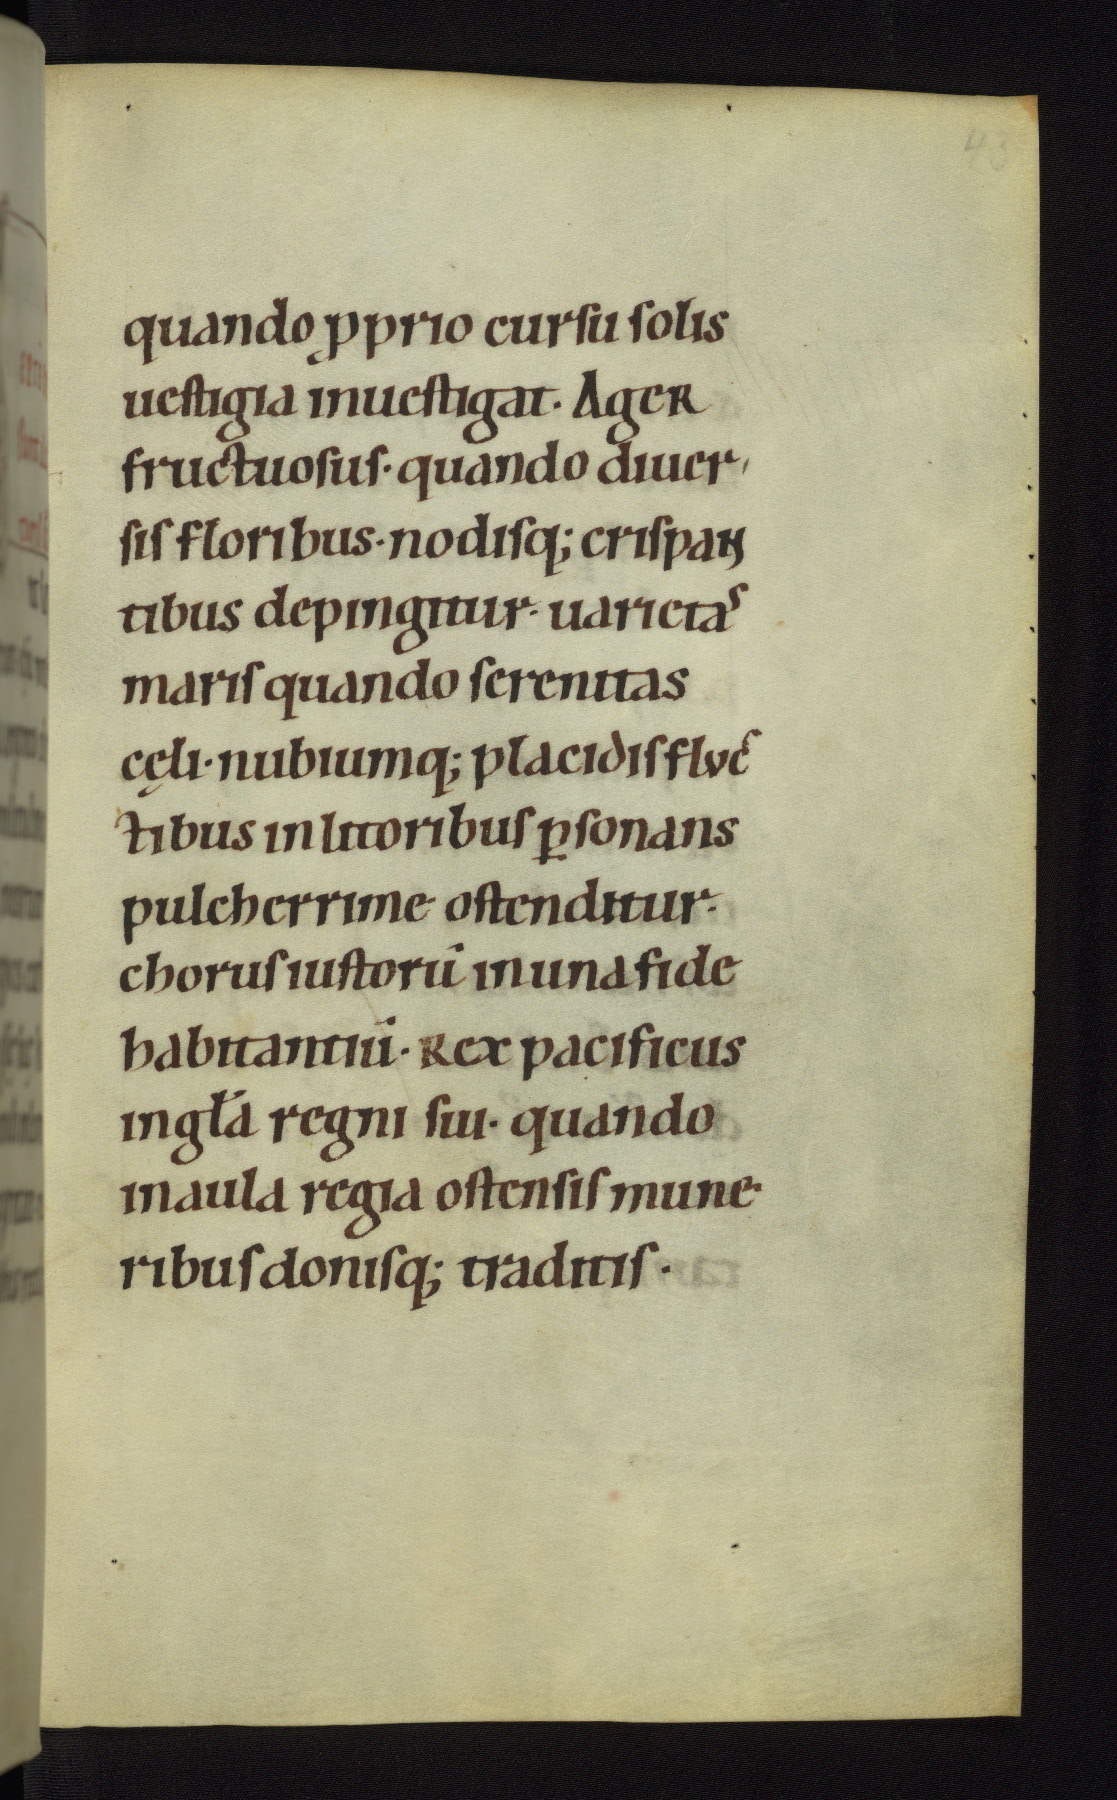 43
quando ꝓprio curſu ſolis
ueſtigia inueſtigat. AgeR
fructuoſuſ. quando diuer,
ſiſ floribus. nodiſq; criſpan
tibus depingitur. uarietaſ
mariſ quando ſerenitas
cęli. nubiumq; placidiſ fluc
tibus in littoribuſ ꝑſonans
pulcherrime oſtenditur.
choruſ iuſtorū in una fide
habitantiū. Rex pacificus
in głā regni ſui. quando
in aula regia oſtenſiſ mune
ribuſ doniſq; traditiſ.